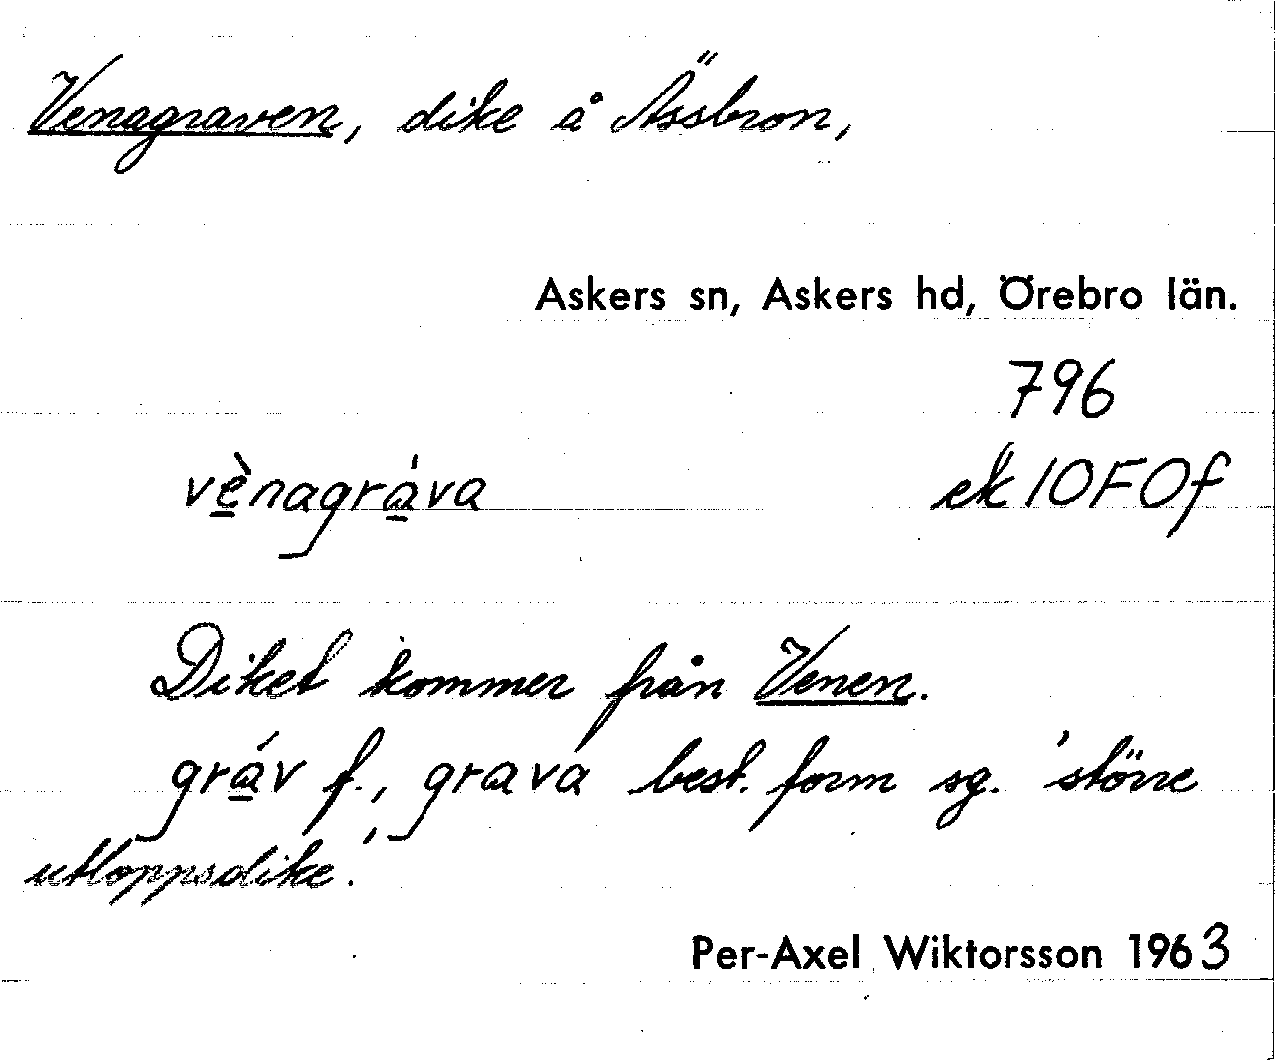 Venagraven, dike å Ässbron,
Askers sn, Askers hd, Örebro län.
796
vènagráva ek 10F0f
Diket kommer från Venen.
gráv f., gravá best. form sg. 'större
utloppsdike'.
Per-Axel Wiktorsson 1963